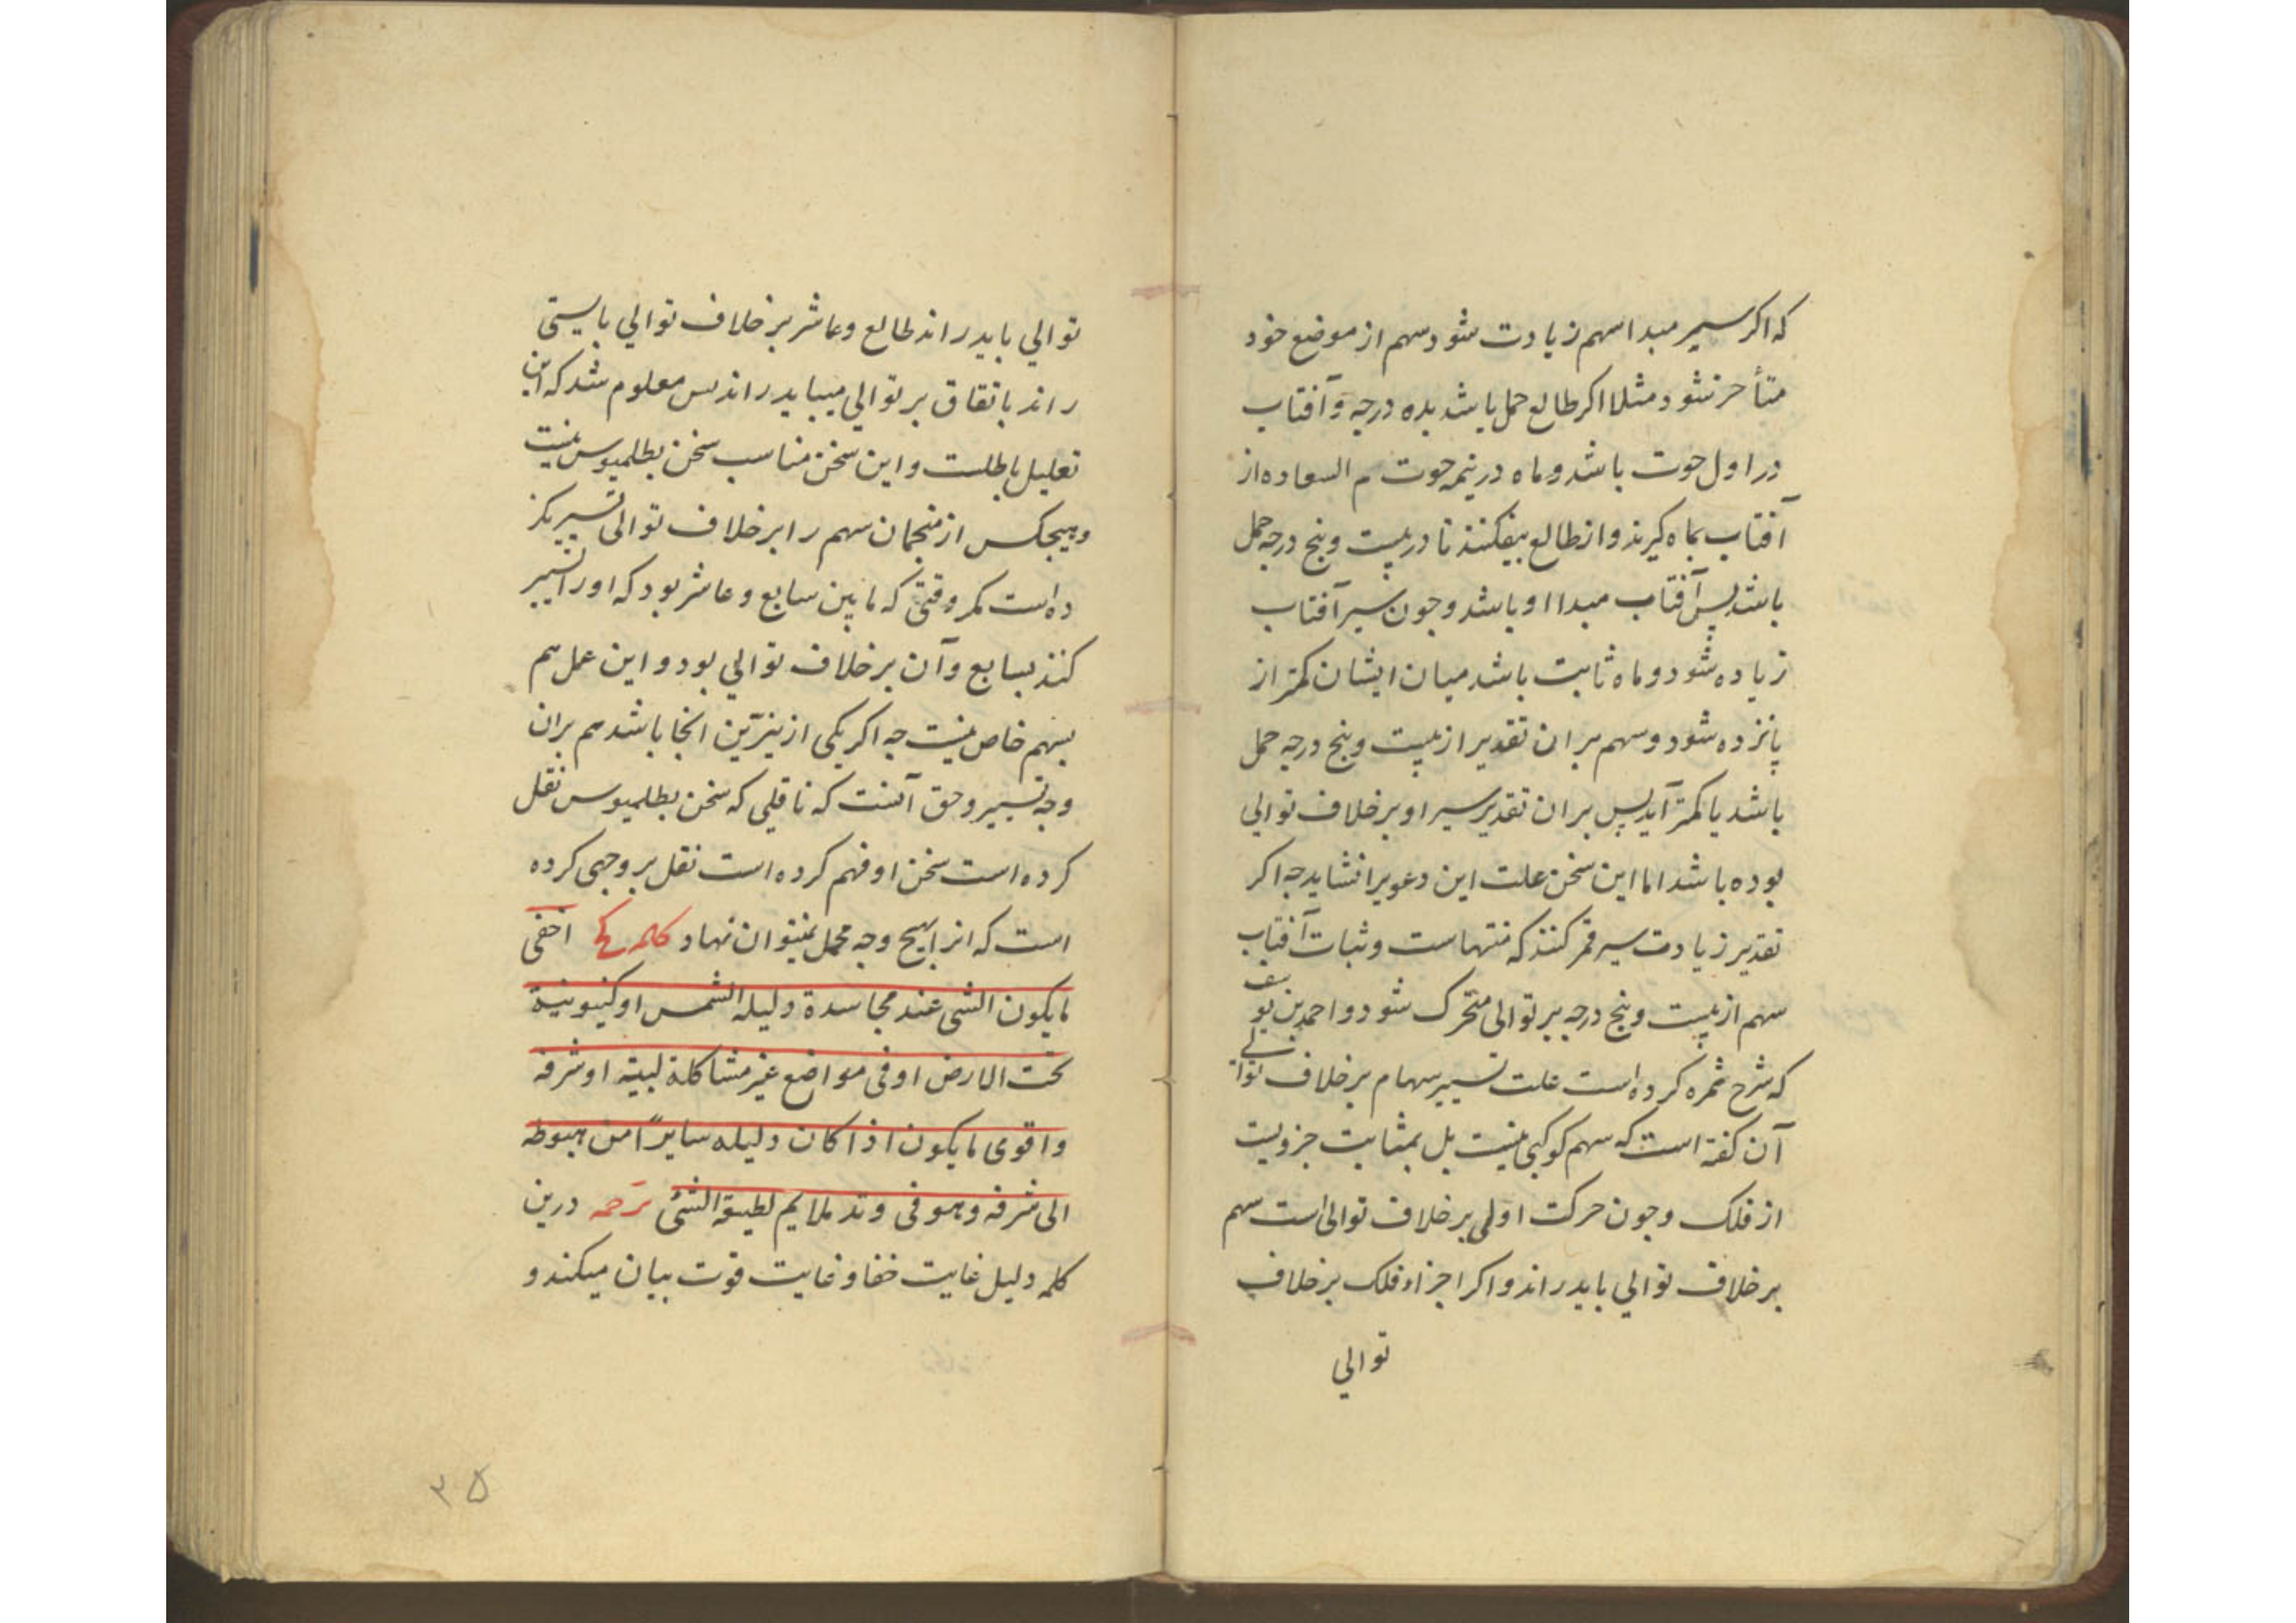 که اکر سیر مبدا سهم زیادت شود سهم از موضع خود
متأخر شود مثلا اکر طالع حمل باشد بده درجه و آفتاب
در اول حوت باشد و ماه در نیمه حوت سهم السعاده از
آفتاب بماه کیرند و از طالع بیفکنند تا در بیست وپنج درجه حمل
باشد پس آفتاب مبدا او باشد و جون سیر آفتاب
زیاده شود و ماه ثابت باشد میان ایشان کمتر از
پانزده شود و سهم بران تقدیر از بیست وپنج درجه حمل
باشد یا کمتر آید پس بران تقدیر سیر او برخلاف توالي
بوده باشد اما این سخن علت این دعویرا نشاید جه اکر
تقدیر زیادت سیر قمر کنند که منتهاست و ثبات آفتاب
سهم از بیست وپنج درجه بر توالی متحرک شود و احمد بن یوسف
که شرح ثمره کرده است علت تسییر سهام برخلاف توالی
آن کفته است که سهم کوکبی نیست بل بمثابت جزویست
از فلک وجون حرکت اولی برخلاف توالی است سهم
برخلاف توالي باید راند و اکر اجزاء فلک برخلاف
توالي
توالي باید راند طالع وعاشر برخلاف توالي بایستی
راند باتفاق بر توالي میباید راند پس معلوم شد که این
تعلیل باطلست و این سخن مناسب سخن بطلمیوس نیست
وهیجکس از منجمان سهم را برخلاف توالی تسییر نکر
ده است مکر وقتی که مابین سابع وعاشر بود که او را تسییر
کنند بسابع وآن برخلاف توالي بود و این عمل هم
بسهم خاص نیست جه اکر یکی از نیّرین انجا باشد هم بران
وجه تسییر وحق آنست که ناقلی که سخن بطلمیوس نقل
کرده است سخن او فهم کرده است نقل بر وجهی کرده
است که انرا هیج وجه محمل نمیتوان نهاد کلمه اخفی
مایکون الشی عند مجاسدة دلیله الشمس اوکینونیة
تحت الارض اوفی مواضع غیر مشاکلة لبیته اوشرفه
واقوی مایکون اذا کان دلیله سایراً من هبوطه
الی شرفه وهو فی وتد ملایم لطبیعة الشئ ترحمه درین
کلمه دلیل غایت خفا و غایت قوت بیان میکند و
۳۵